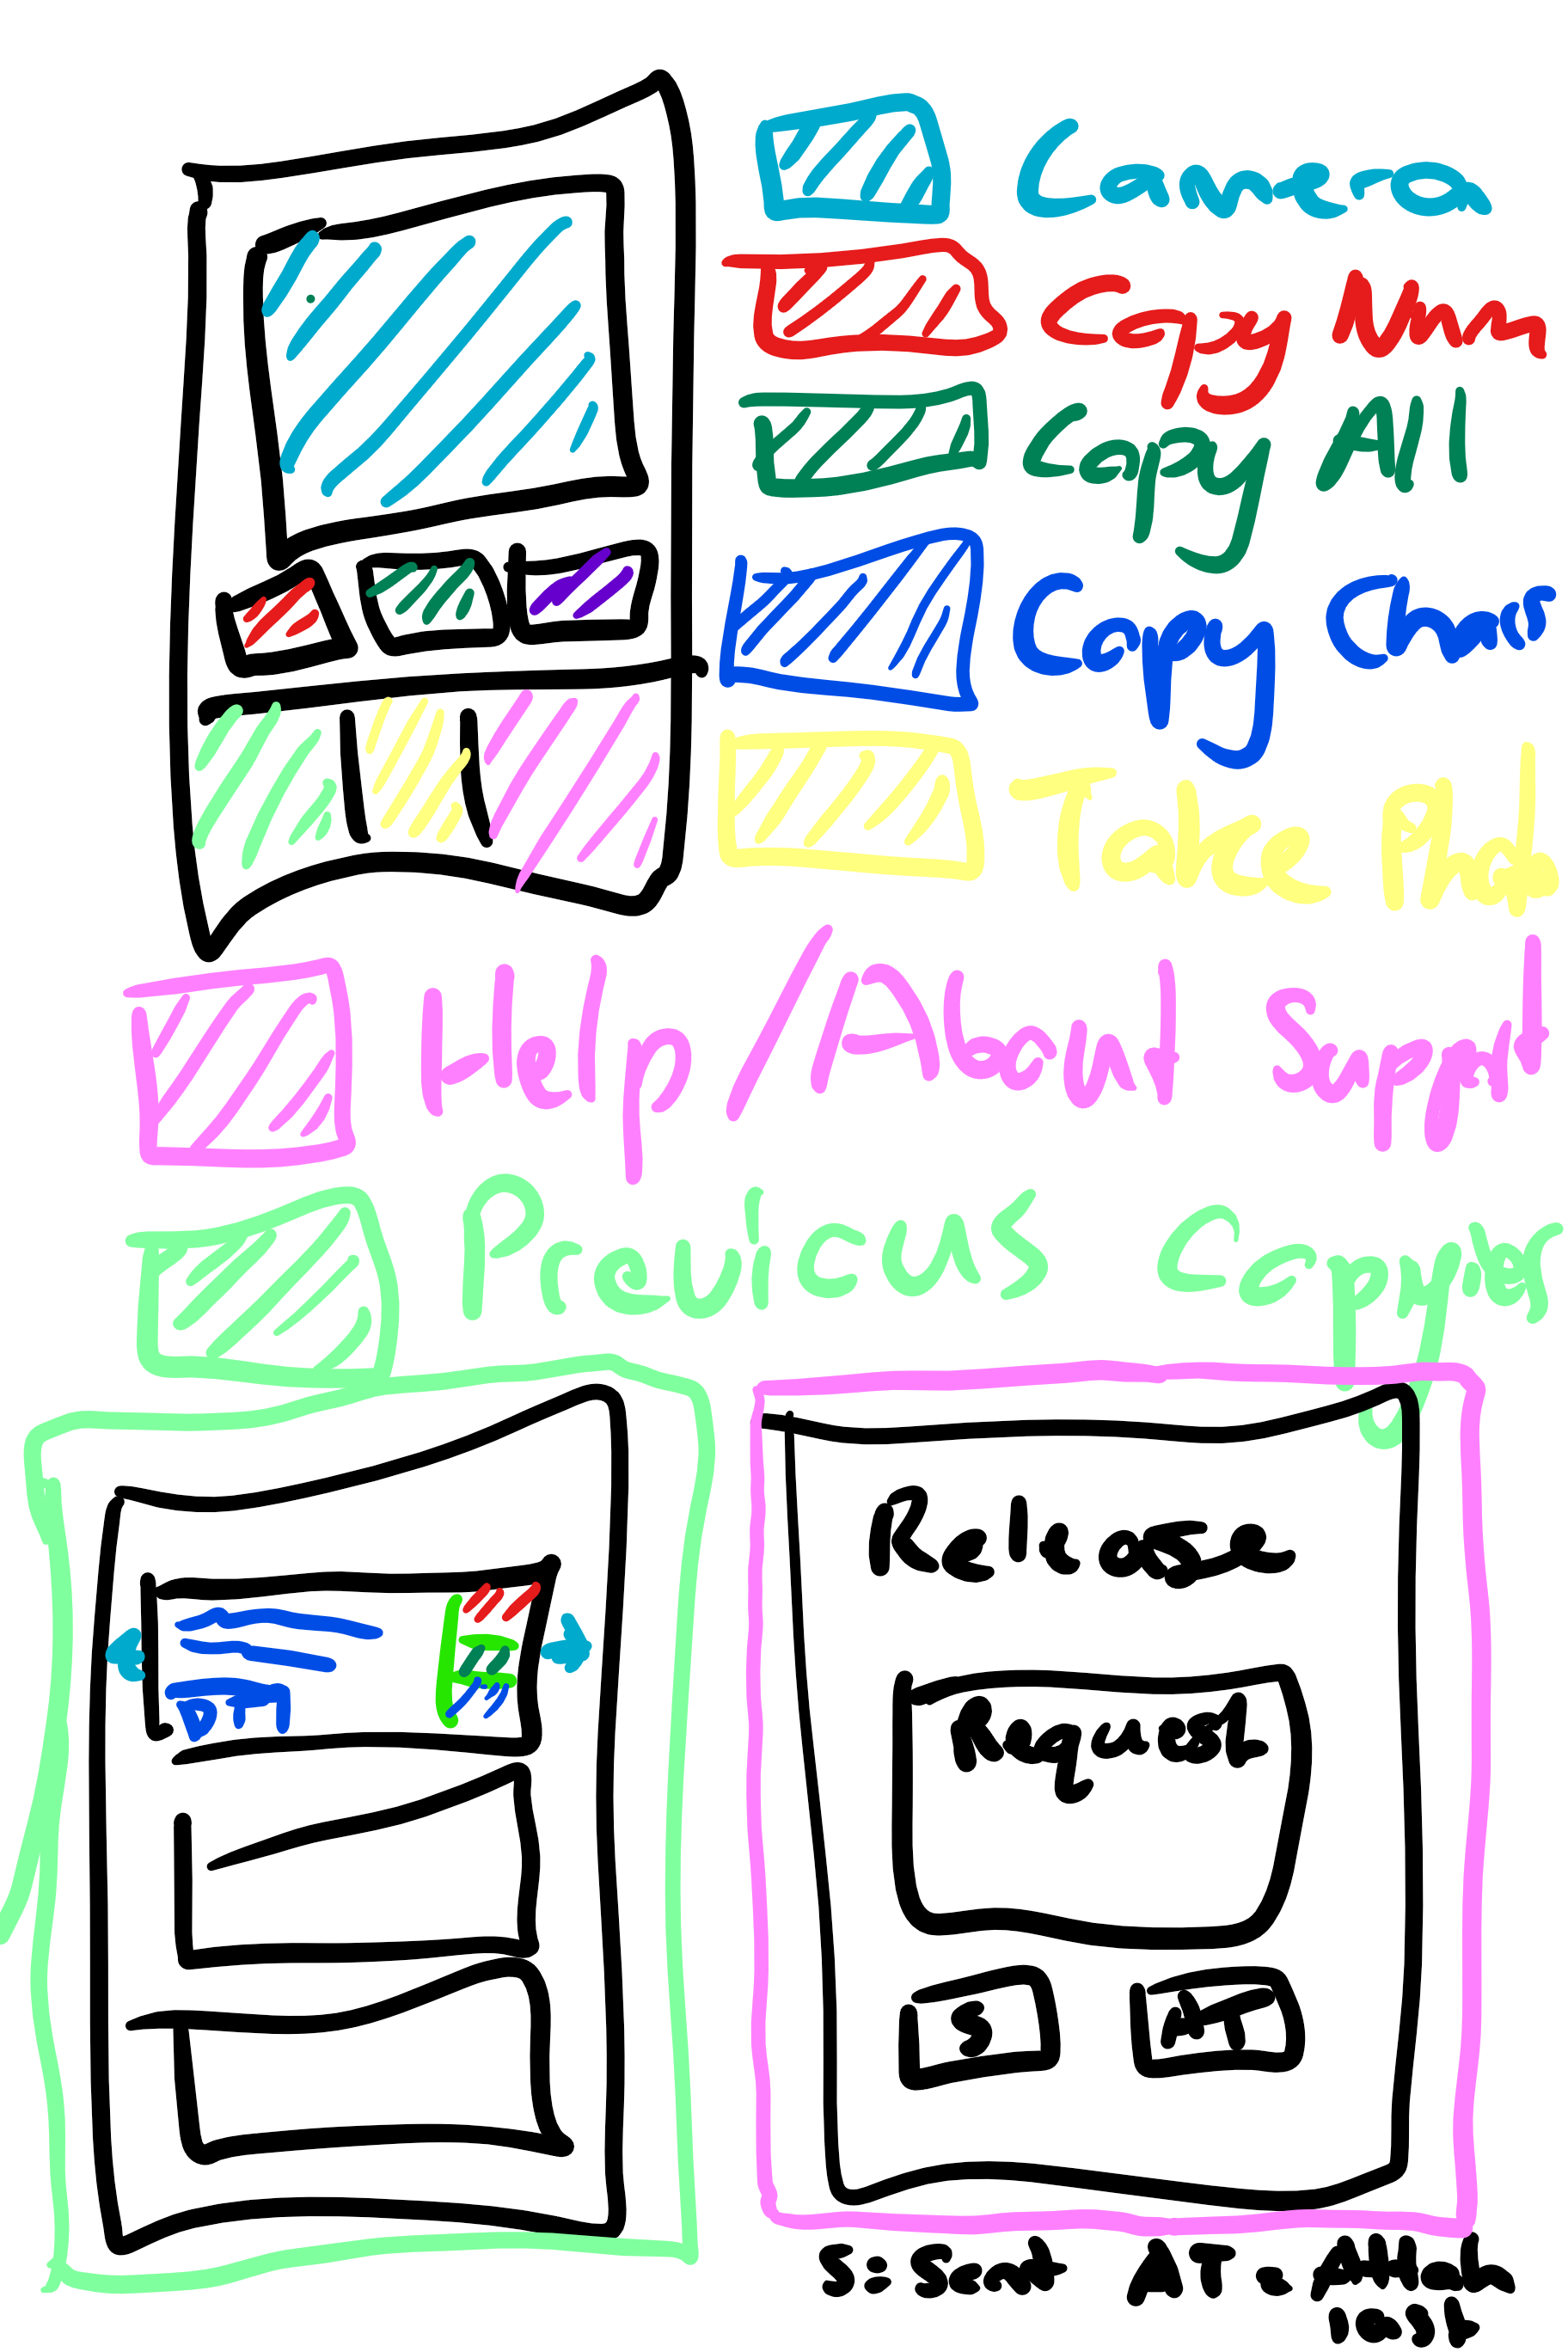 Camera
Copy
Copy All
Copy Chars
Take Phot
Help/About Support
Previous Copying
Release
Request
S
AT
S: Sent AT - Attach
last